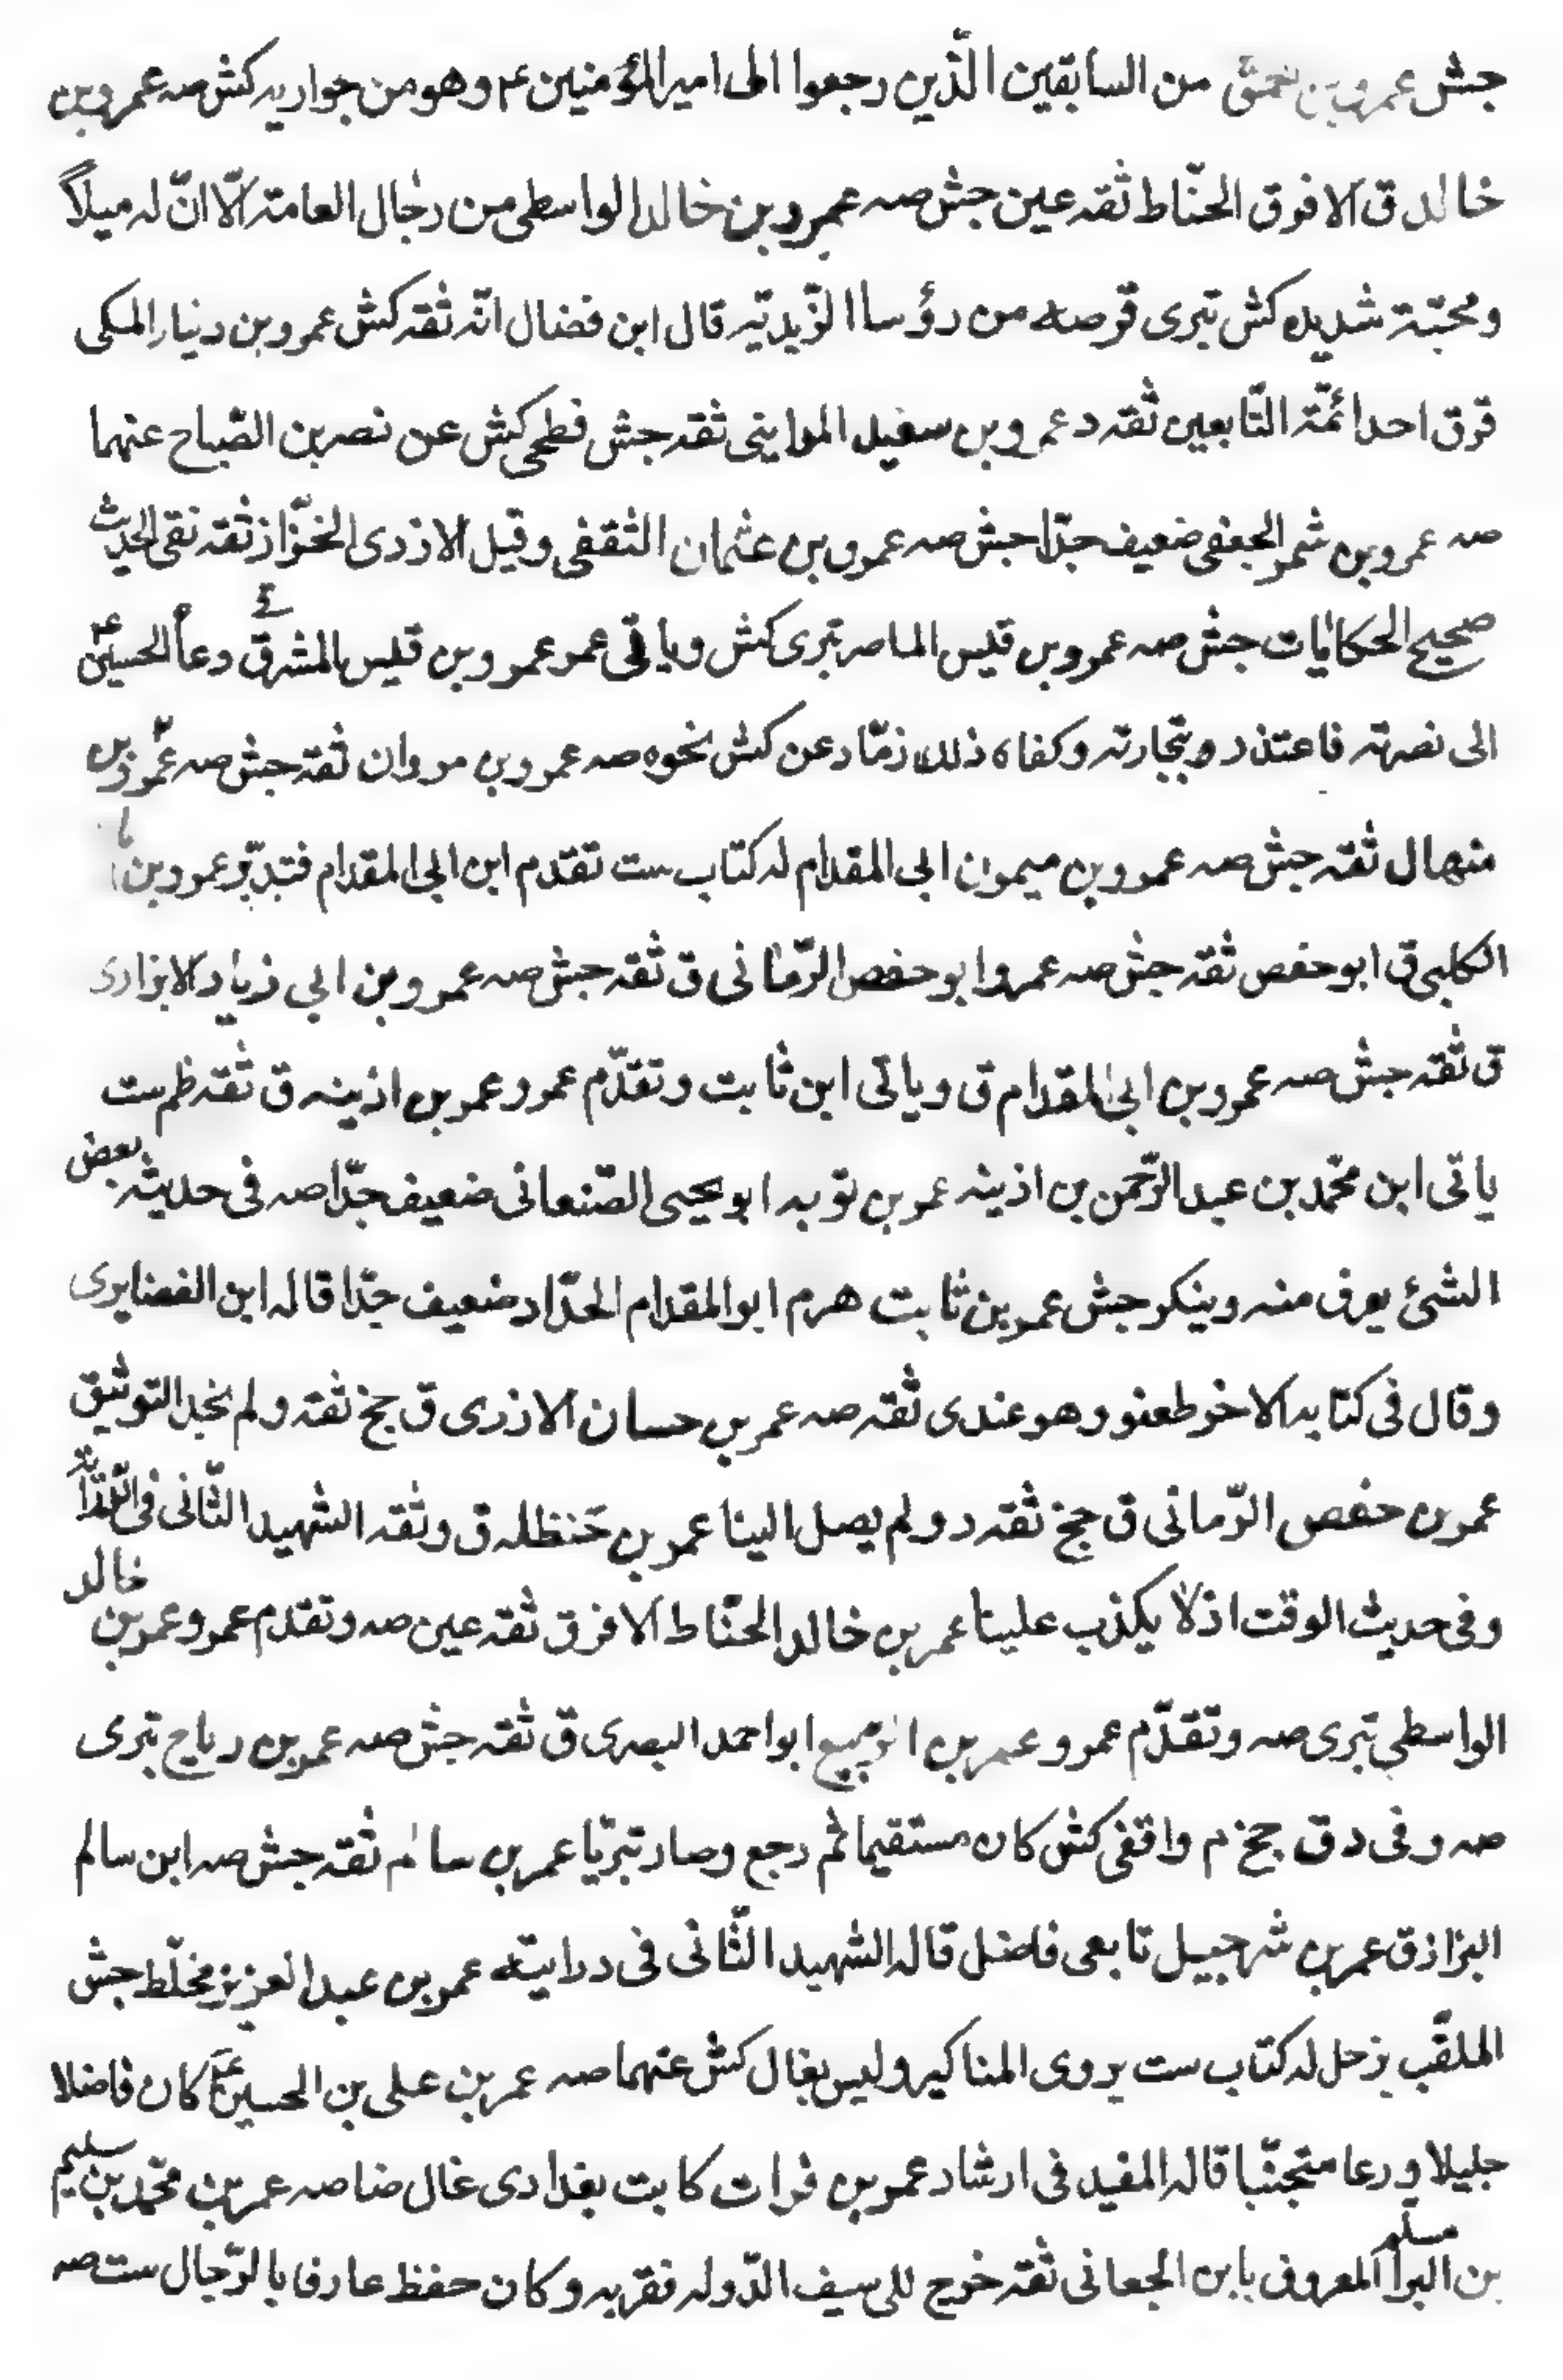 جش عمرو بن حمق من السابقين الّذين رجعوا الى امير المؤمنين ع وهو من حواريه كش صه عمرو بن
خالد ق الافرق الحنّاط ثقه عين جش صه عمرو بن خالد الواسطى من رجال العامة الّا انّ له ميلاً
ومحبّة شديده كش تبرى قر صه من رؤساا الزّيديّه قال ابن فضال انّه ثقه كش عمرو بن دينار المكى
قر ق احد ائمّة التّابعين ثقه د عمرو بن سعيد المداينى ثقه جش فطحى كش عن نصر بن الصّباح عنهما
صه عمرو بن شمر الجعفى ضعيف جدّا جش صه عمرو بن عثمان الثقفى وقيل الازدى الخزّاز ثقه نقى الحديث
صحيح الحكايات جش صه عمرو بن قيس الماصر تبرى كش وياتى عمر عمرو بن قيس المشرقى دعاه الحسين ع
الى نصرته فاعتذر وبتجارته وكفاه ذلك ذمّا دعن كش نحوه صه عمرو بن مروان ثقة جش صه عمرو بن
منهال ثقه جش صه عمرو بن ميمون ابى المقدام له كتاب ست تقدم ابن ابى المقدام فتدبّر عمرو بن
الكلبى ق ابو حفص ثقه جش صه عمرو ابو حفص الرّمانى ق ثقه جش صه عمرو بن ابى زياد الابزارى
ق ثقه جش صه عمرو بن ابى المقدام ق وياتى ابن ثابت وتقدّم عمرو عمر بن اذينه ق ثقه ظم ست
ياتى ابن محمّد بن عبد الرّحمن بن اذينه عمر بن توبه ابو يحيى الصّنعانى ضعيف جدّا صه فى حديثه بعض
الشئ يعرف منه وينكر جش عمر بن ثابت هرم ابو المقدام الحدّاد ضعيف جدّا قاله ابن الغضايرى
وقال فى كتابه الاخر طعنو وهو عندى ثقه صه عمر بن حسان الازدى ق جخ ثقه ولم نجد التوثيق
عمر بن حفص الرّمانى ق جخ ثقه د ولم يصل الينا عمر بن حنظله ق وثقه الشهيد الثّانى فى
وفى حديث الوقت اذ لا يكذب علينا عمر بن خالد الحنّاط الافرق ثقه عين صه وتقدم عمرو عمر بن خالد
الواسطى تبرى صه وتقدّم عمرو عمر بن الربيع ابو احمد البصرى ق ثقه جش صه عمر بن رياح تبرى
صه وفى د ق جخ م واقفى كش كان مستقيما ثم رجع وصار تبريّا عمر بن سالم ثقه جش صه ابن سالم
البزاز ق عمر بن شرحبيل تابعى فاضل قاله الشهيد الثّانى فى درايته عمر بن عبد العزيز مخلّط جش
الملقّب بزحل له كتاب ست يروى المناكير وليس بغال كش عنهما صه عمر بن على بن الحسين ع كان فاضلا
جليلا ورعا متجنّبا قاله المفيد فى ارشاد عمر بن فرات كاتب بغدادى غال ضا صه عمر بن محمّد بن سليم
بن البرا المعروف بابن الجعانى ثقه خرج للى سيف الدّوله فقربه وكان حفظ عارف بالرّجال ست صه
مسلم